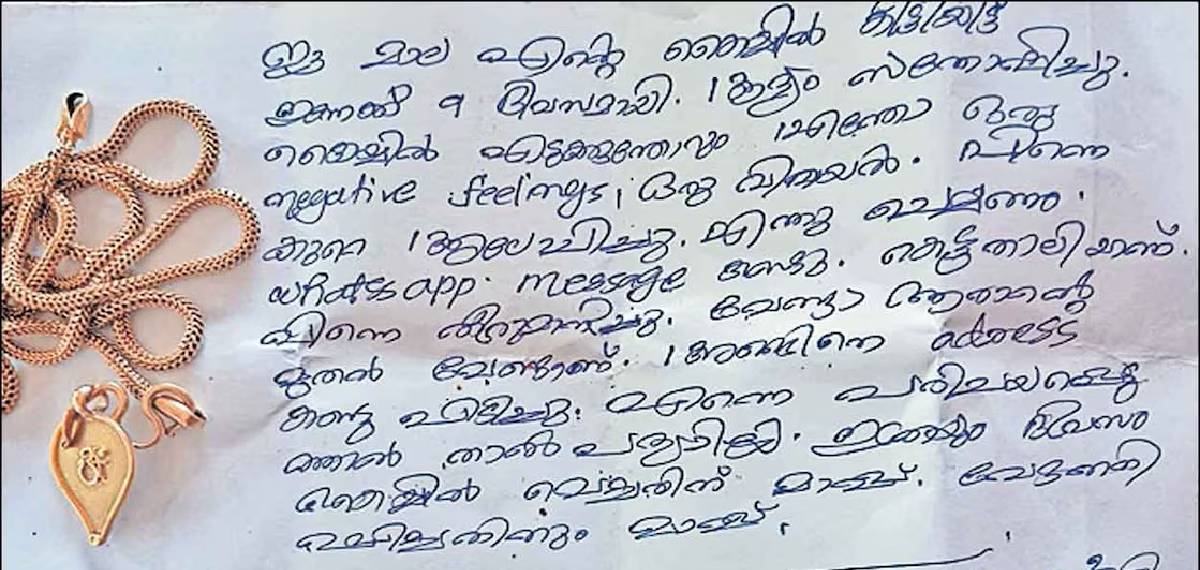 ഈ മാല എന്റെ കൈയ്യിൽ കിട്ടിയിട്ട്
ഇന്നേക്ക് 9 ദിവസമായി. ആദ്യം സന്തോഷിച്ചു.
കൈയ്യിൽ എടുക്കുന്തോറും എന്തോ ഒരു
negative feelings, ഒരു വിറയൽ. പിന്നെ
കുറെ ആലോചിച്ചു. എന്തു ചെയ്യണം.
whatsapp message കണ്ടു. കെട്ടുതാലിയാണ്.
പിന്നെ തീരുമാനിച്ചു. വേണ്ടാ ആരാന്റെ
മുതൽ വേണ്ടാന്ന്. അങ്ങിനെ
കണ്ടു പിടിച്ചു. എന്നെ പരിചയപ്പെടു
ത്താൻ താൽപര്യമില്ല. ഇത്രയും ദിവസം
കൈയ്യിൽ വെച്ചതിന് മാപ്പ്. വേദനി
പ്പിച്ചതിനും മാപ്പ്.